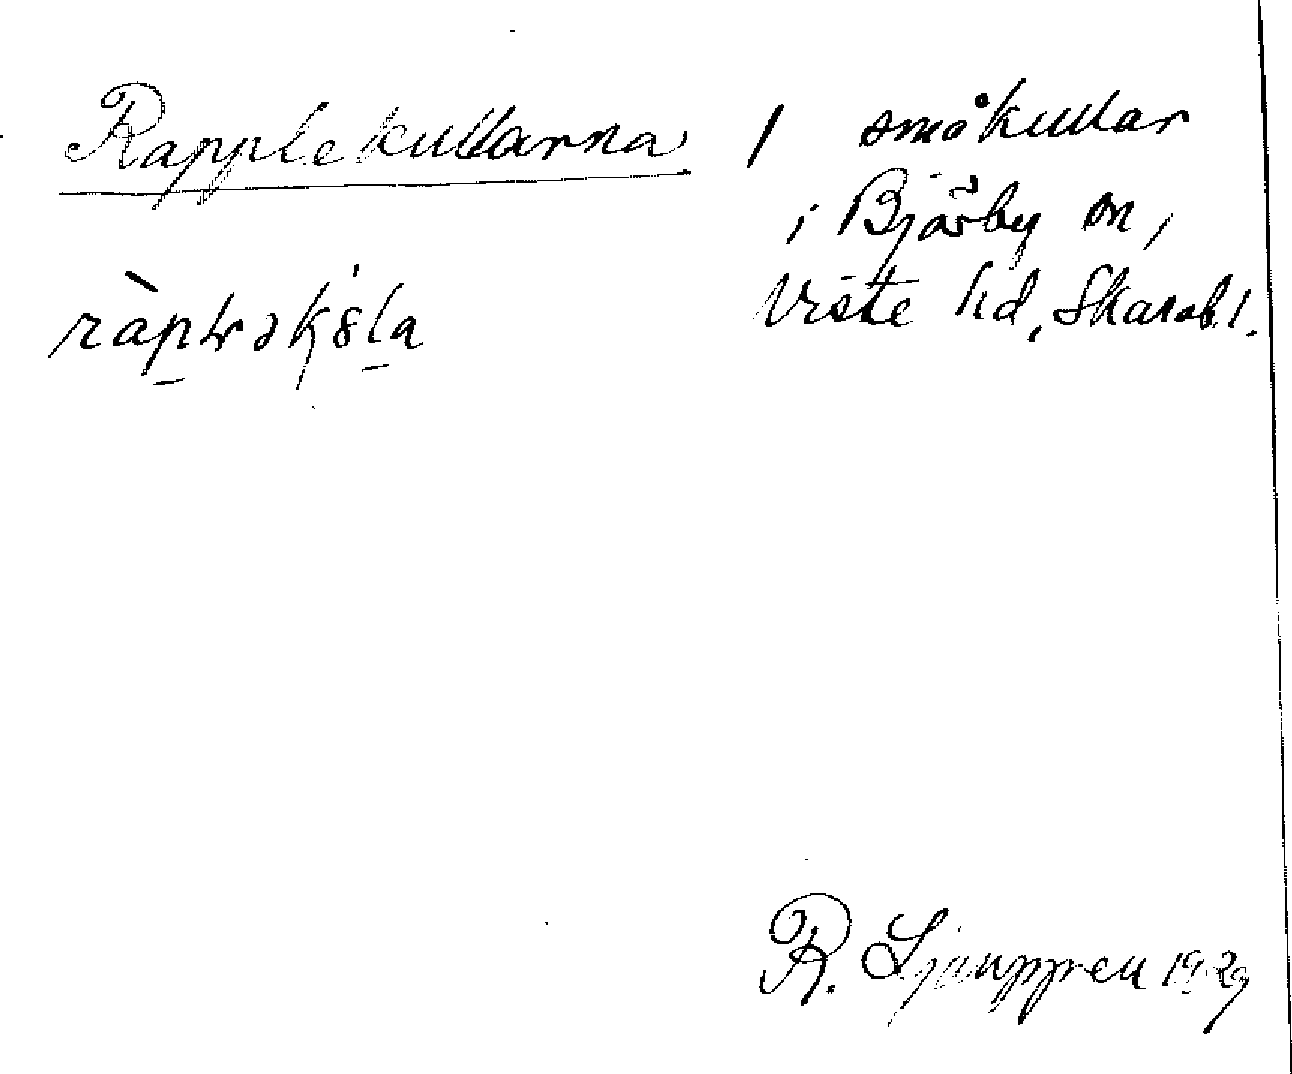 Rapplekullarna / småkullar
i Bjärby sn,
Viste hd, Skarab.l.
R. Ljunggren 1929